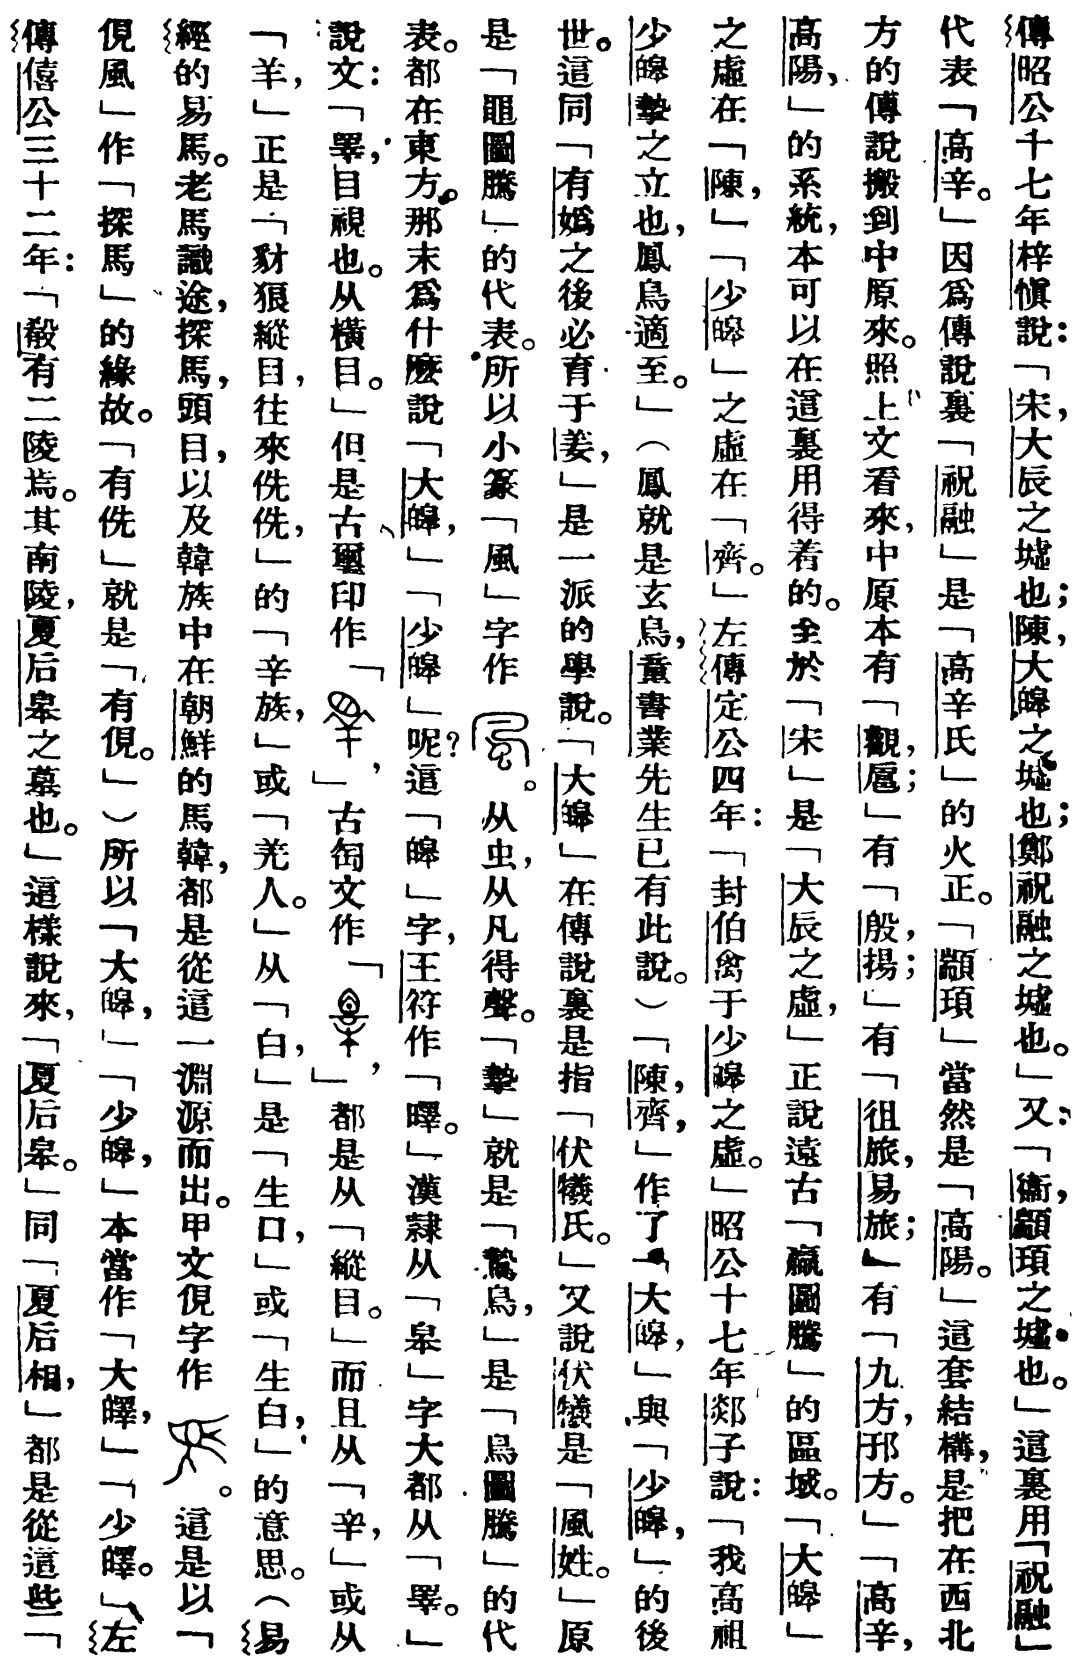 傳昭公十七年梓愼說：「宋，大辰之墟也；陳，大皞之墟也；鄭祝融之墟也。」又：「衞，顓頊之墟也。」這裏用「祝融」
代表「高辛。」因爲傳說裏「祝融」是「高辛氏」的火正。「顓頊」當然是「高陽。」這套結構，是把在西北
方的傳說搬到中原來。照上文看來，中原本有「觀，扈；」有「殷，揚；」有「徂旅，易旅；」有「九方，邘方。」「高辛，
高陽，」的系統，本可以在這裏用得着的。至於「宋」是「大辰之虛，」正說遠古「嬴圖騰」的區域。「大皞」
之虛在「陳，」「少皞」之虛在「齊。」左傳定公四年：「封伯禽于少皞之虛。」昭公十七年郯子說：「我高祖
少皞摯之立也，鳳鳥適至。」（鳳就是玄鳥，童書業先生已有此說。）「陳，齊，」作了「大皞，」與「少皞，」的後
世。這同「有嬀之後必育于姜，」是一派的學說。「大皞」在傳說裏是指「伏犧氏。」又說伏犧是「風姓。」原
是「黽圖騰」的代表。所以小篆「風」字作。从虫，从凡得聲。「摯」就是「鷙鳥，」是「鳥圖騰」的代
表。都在東方。那末爲什麽說「大皞，」「少皞」呢？這「皞」字，王符作「曎。」漢隸从「皋」字大都从「睪。」
說文：「睪，目視也。从橫目。」但是古璽印作「」，古匋文作「」，都是从「縱目。」而且从「辛，」或从
「羊，」正是「豺狼縱目，往來侁侁，」的「辛族，」或「羌人。」从「白，」是「生口，」或「生白，」的意思。（易
經的易馬。老馬識途，探馬，頭目，以及韓族中在朝鮮的馬韓，都是從這一淵源而出。甲文俔字作。這是以「
俔風」作「探馬」的緣故。「有侁」就是「有俔。」）所以「大皞，」「少皞，」本當作「大皞，」「少曎。」左
傳僖公三十二年：「殽有二陵焉。其南陵，夏后皋之墓也。」這樣說來，「夏后皋。」同「夏后相，」都是從這些「